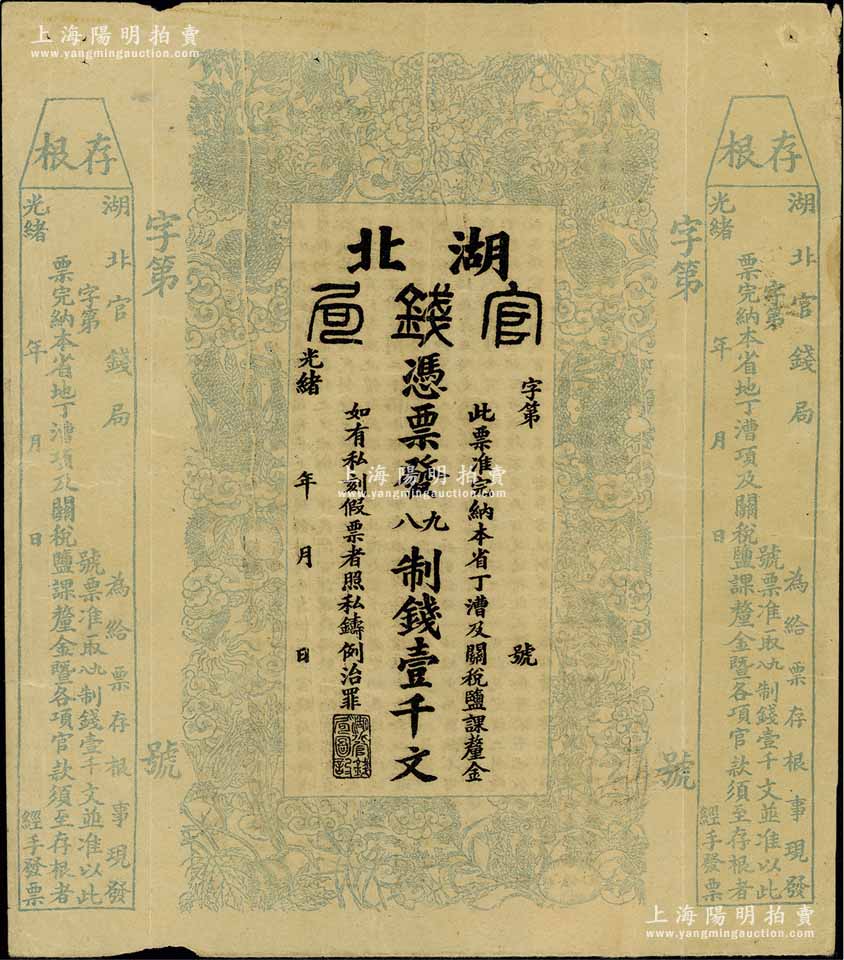 上海陽明拍賣
www.yangmingauction.com
上海陽明拍賣
www.yangmingauction.com
湖北
官錢局
字第 號
此票准完納本省丁漕及關稅鹽課釐金
憑票發九八制錢壹千文
如有私刻假票者照私鑄例治罪
光緒 年 月 日
湖北官錢局圖記
字第 號
存根
湖北官錢局 為給票存根事現發
字第 號票准取九八制錢壹千文並准以此
票完納本省地丁漕項及關稅鹽課釐金暨各項官款須至存根者
光緒 年 月 日 經手發票
字第 號
存根
湖北官錢局 為給票存根事現發
字第 號票准取九八制錢壹千文並准以此
票完納本省地丁漕項及關稅鹽課釐金暨各項官款須至存根者
光緒 年 月 日 經手發票
上海陽明拍賣
www.yangmingauction.com
上海陽明拍賣
www.yangmingauction.com